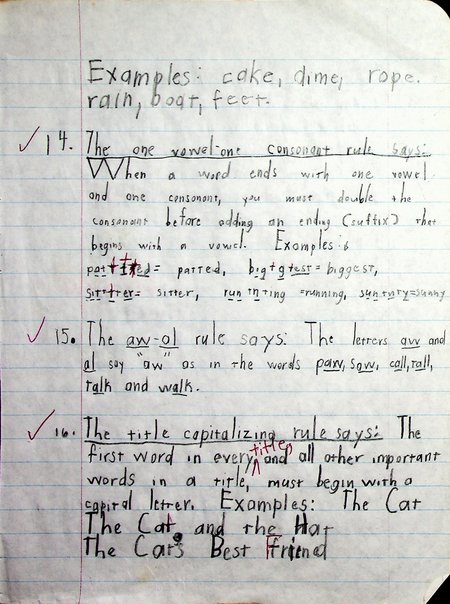 Examples: cake, dime, rope.
rain, boat, feet.
14. The one vowel-one consonant rule says:
When a word ends with one vowel
and one consonant, you must double the
consonant before adding an ending (suffix) that
begins with a vowel. Examples:
pat+t+ed = patted, big+g+est = biggest,
sit+t+er = sitter, run+n+ing = running, sun+n+y = sunny
15. The aw-al rule says: The letters aw and
al say "aw" as in the words paw, saw, call, tall,
talk and walk.
16. The title capitalizing rule says: The
first word in every title, and all other important
words in a title, must begin with a
capital letter. Examples: The Cat
The Cat and the Hat
The Cat's Best Friend